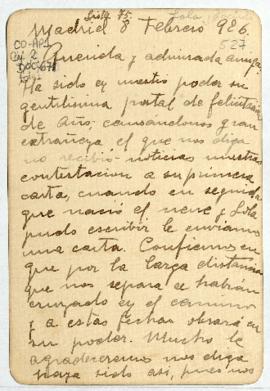 Lista 75.
Madrid 8 Febrero 926.
527
Querida y admirada amiga:
Ha sido en nuestro poder su
gentilisima postal de felicitación
de Año; causándonos gran
extrañeza el que nos diga
no recibió noticias nuestras
contestacion a su primera
carta, cuando en seguida
que nació el nene y Lola
pudo escribir le enviamos
una carta. Confiemos en
que por la larga distancia
que nos separa se habrán
cruzado en el camino
y a estas fechas obrará en
su poder. Mucho le
agradeceremos nos diga
haya sido así, pues nos